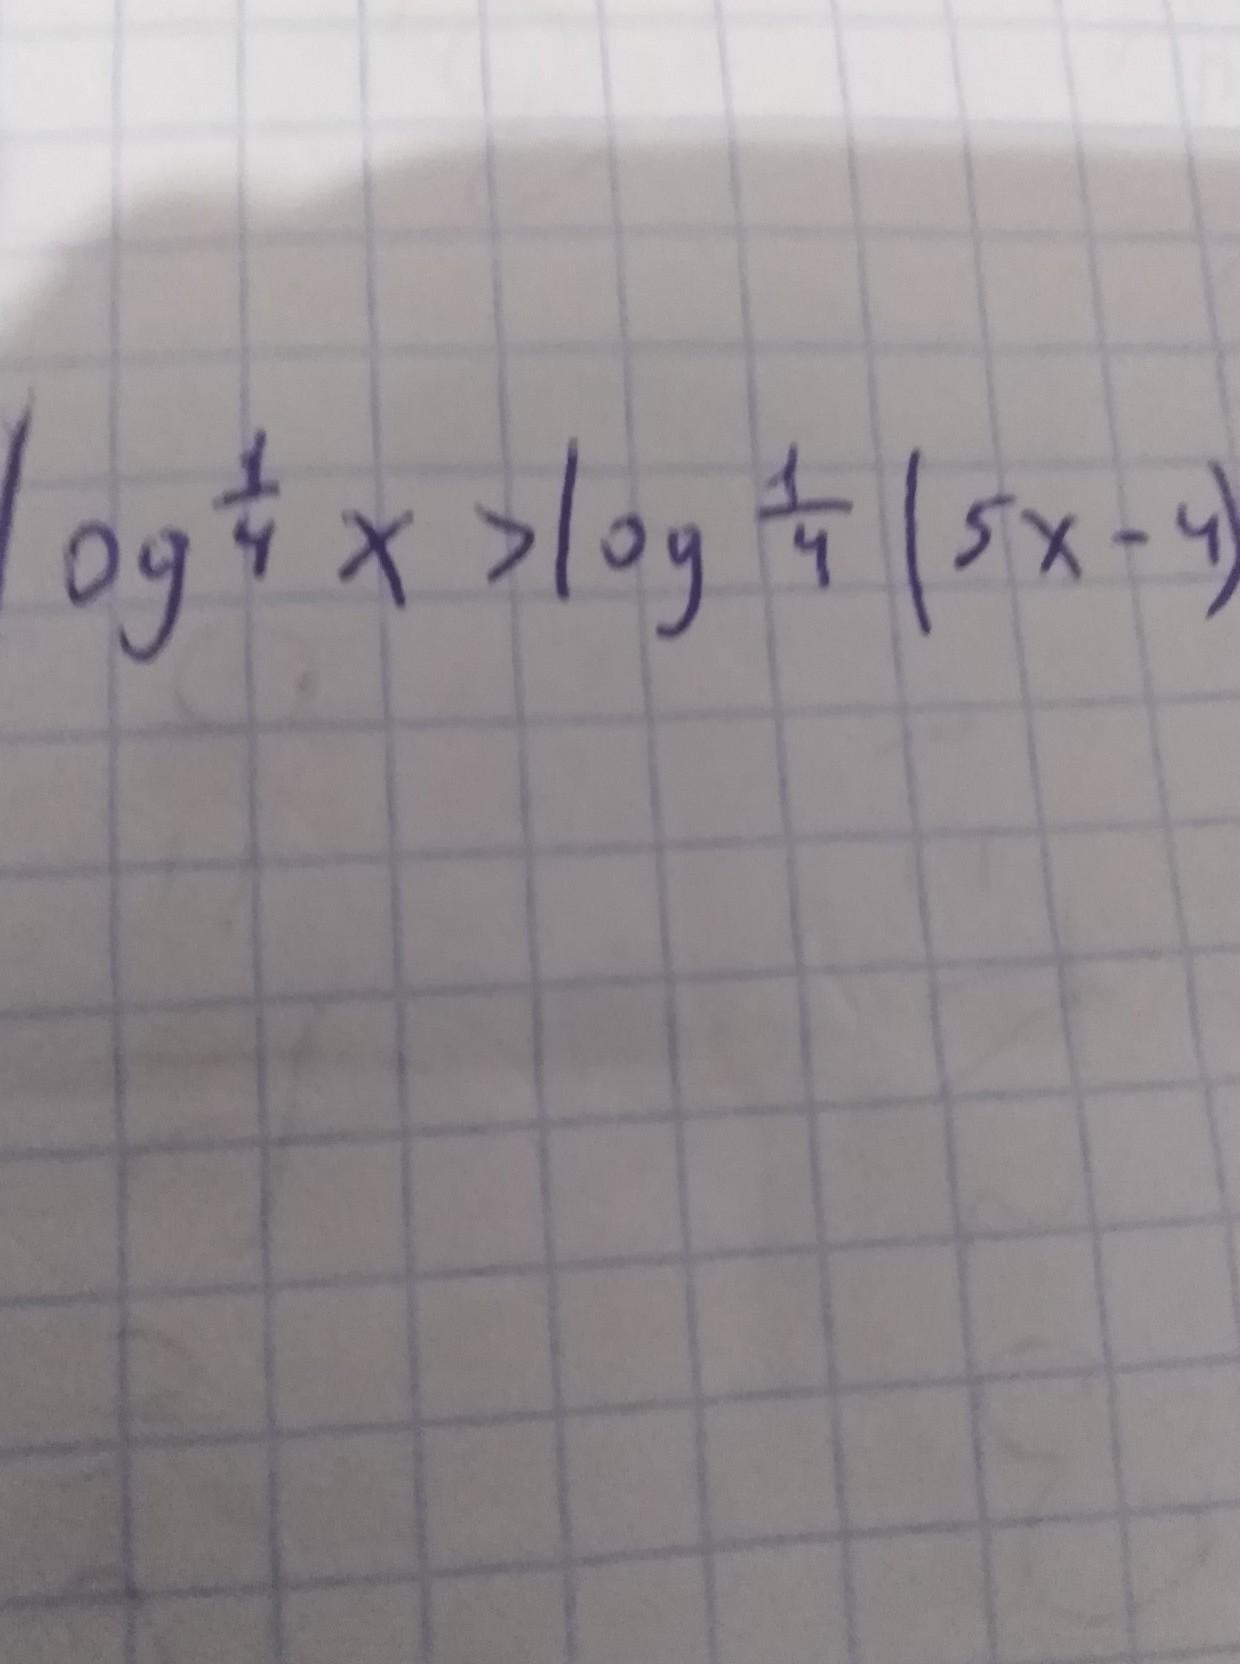 log 1/4 x > log 1/4 (5x - 4)